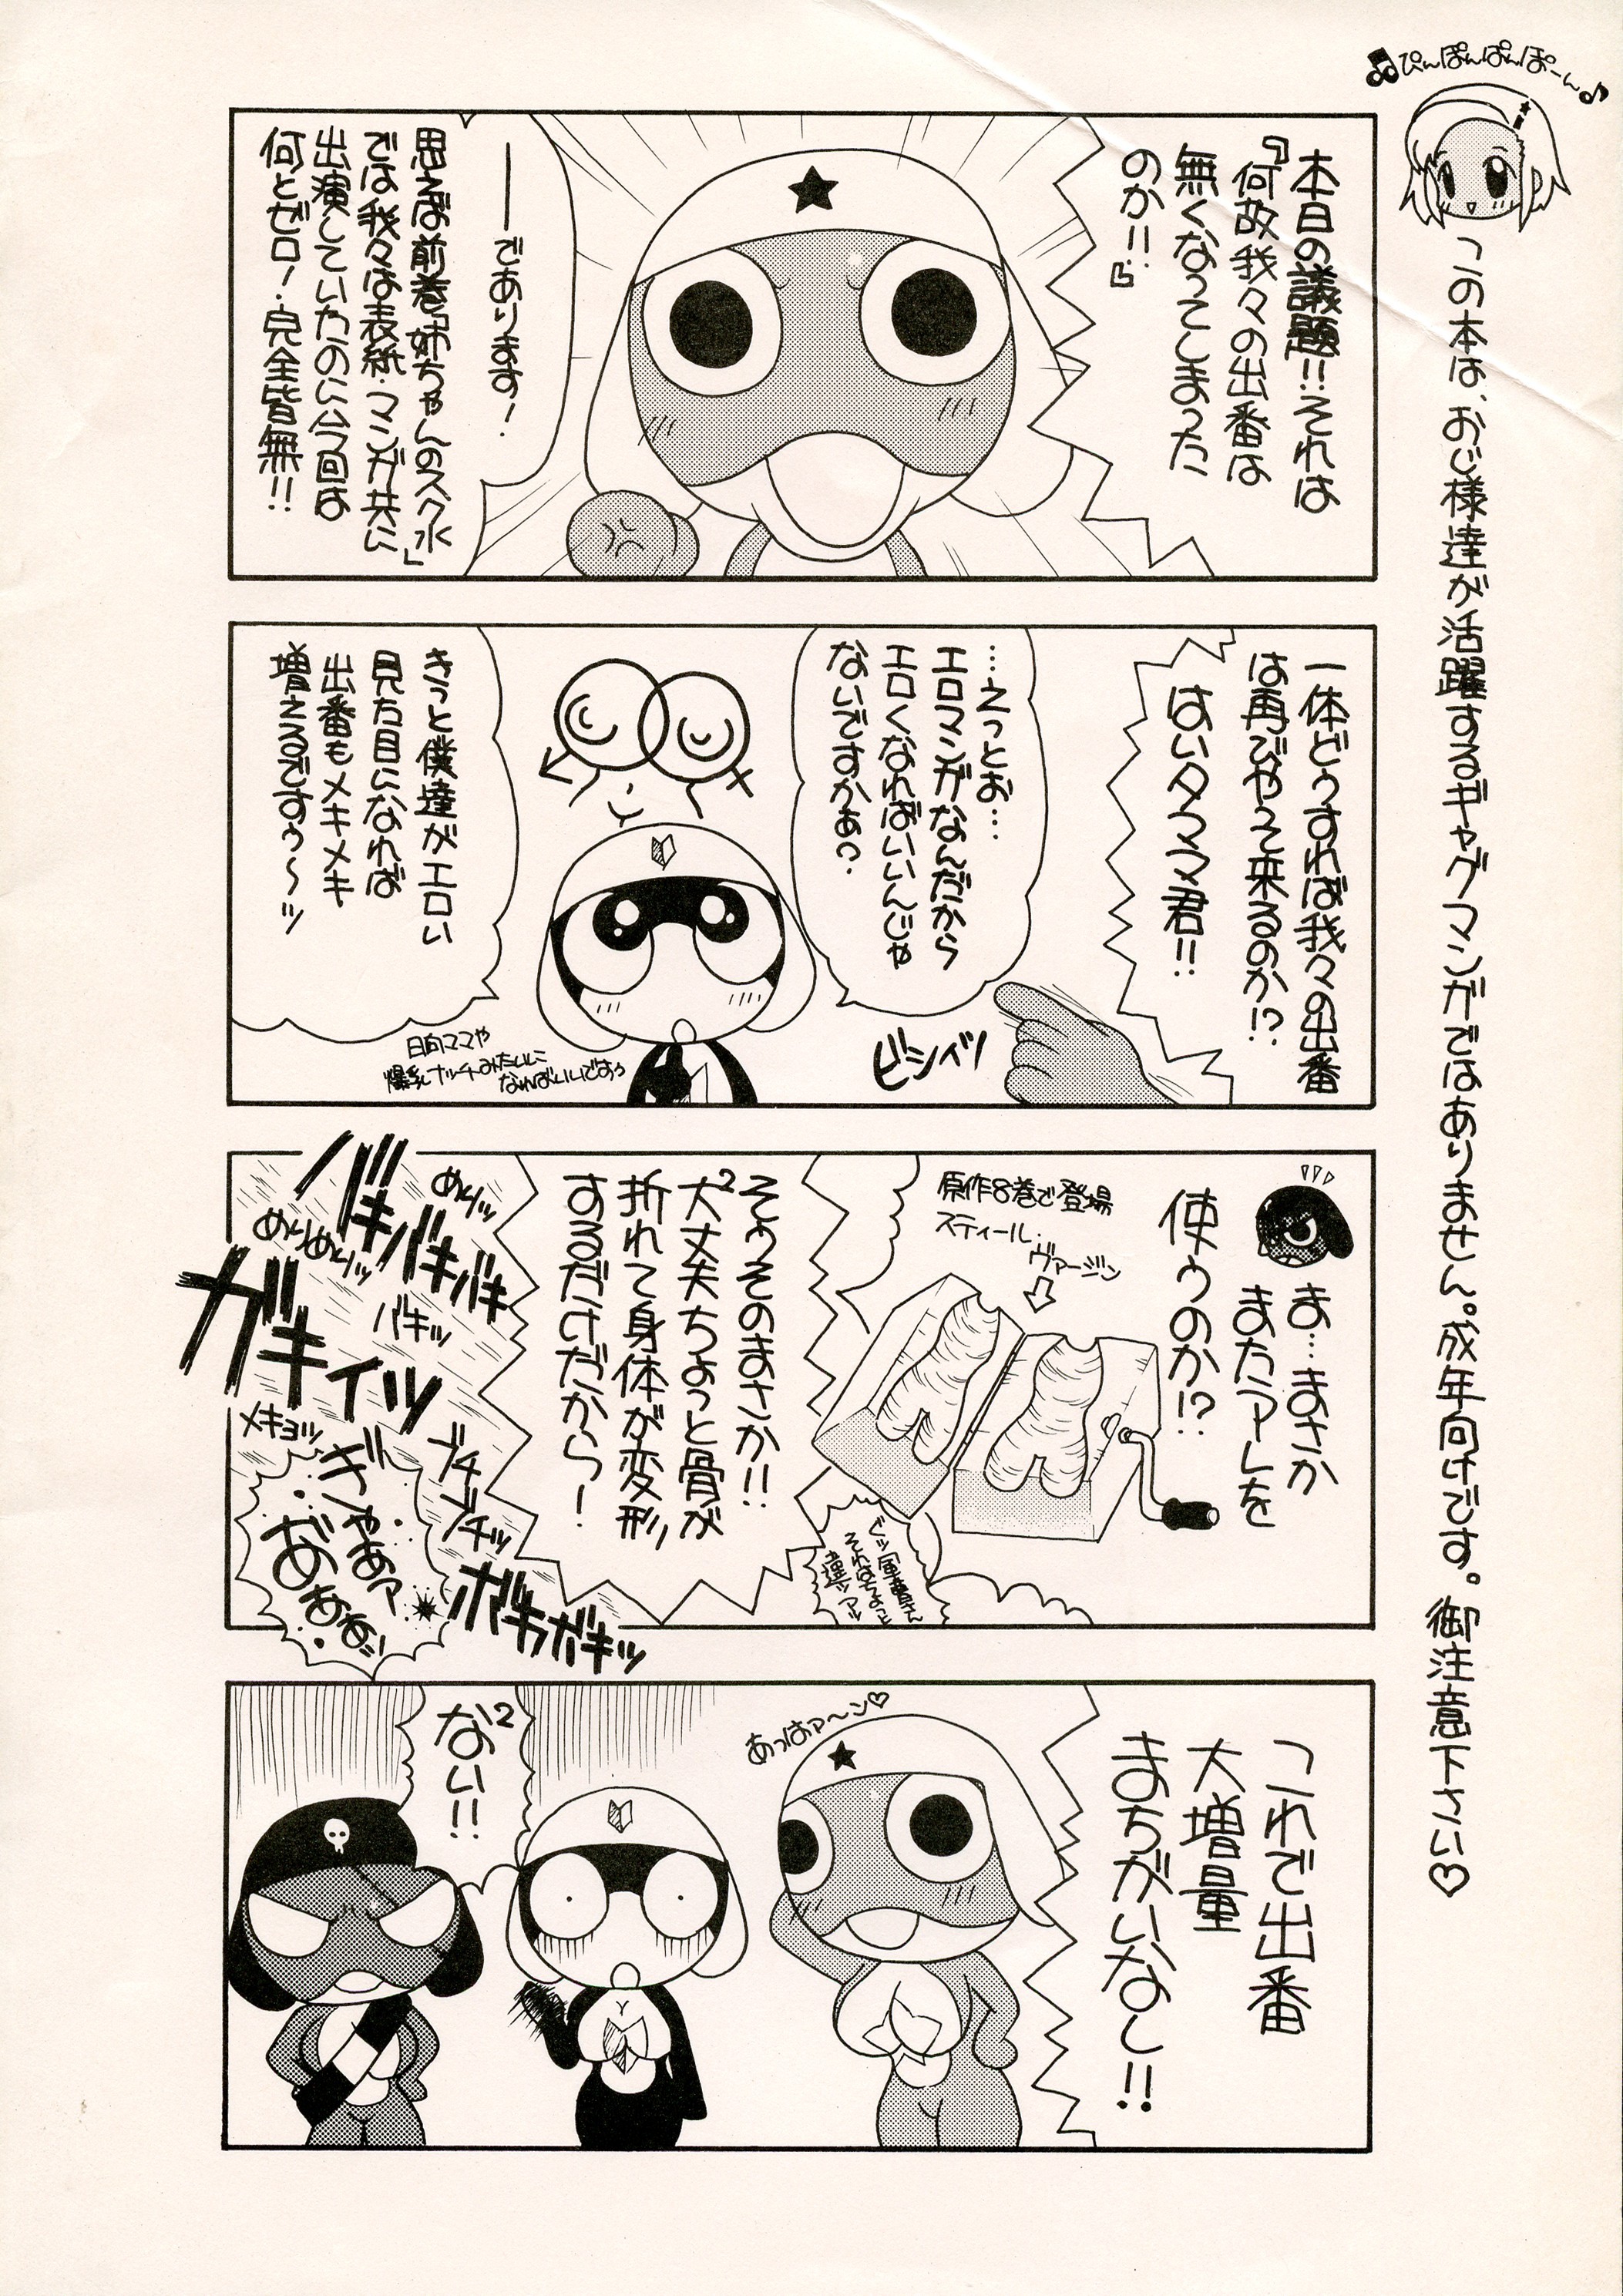 ぴんぽんぱんぽーん♪
この本は、おじ様達が活躍するギャグマンガではありません。成年向けです。御注意下さい♡
本日の議題!!それは
『何故我々の出番は
無くなってしまった
のか!!』
――であります!
思えば前巻「姉ちゃんのスク水」
では我々は表紙・マンガ共に
出演していたのに今回は
何とゼロ!完全皆無!!
一体どぅすれば我々の出番
は再びやって来るのか!?
はいタママ君!!
ビシィッ
…えっとぉ…
エロマンガなんだから
エロくなればいいんじゃ
ないですかぁ?
きっと僕達がエロい
見た目になれば
出番もメキメキ
増えるですぅ〜ッ
日向ママや
爆乳ナッチーみたいに
なればいいですぅ
ま…まさか
またアレを
使うのか!?
原作8巻で登場
スティール・
ヴァージン
ぐッ軍曹さん
それはちょっと
違ッアッ
そぅそのまさか!!
大²丈夫ちょっと骨が
折れて身体が変形
するだけだから!
めりッ
バキバキバキ
めりめりッ
バキッ
ガキィッ
メキョッ
ブチブチッ
ぎゃあァ
あああ!!
ボキガキッ
これで出番
大増量
まちがいなし!!
あっはァ〜ン♡
な²い!!